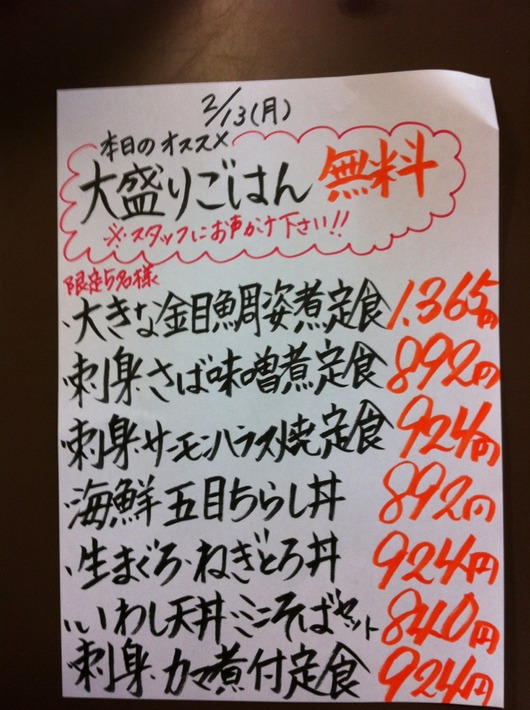 2/13(月)
本日のオススメ
大盛りごはん 無料
※・スタッフにお声かけ下さい!!
限定5名様
・大きな金目鯛姿煮定食 1.365円
・刺身・さば味噌煮定食 892円
・刺身・サーモンハラス焼定食 924円
・海鮮五目ちらし丼 892円
・生まぐろ・ねぎとろ丼 924円
・いわし天丼・ミニそばセット 840円
・刺身・カマ煮付定食 924円